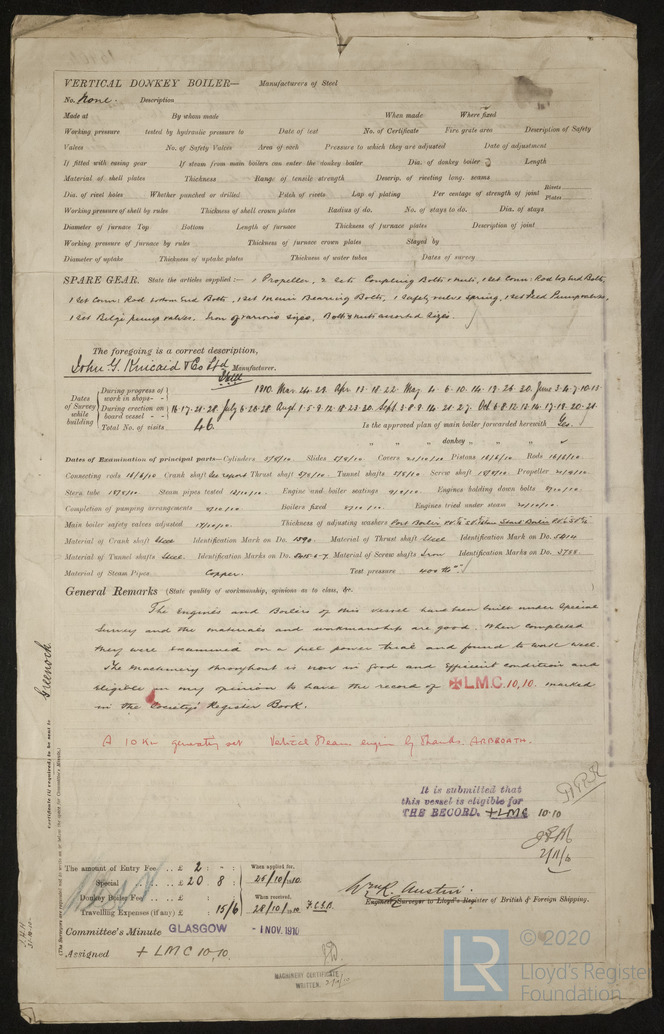 VERTICAL DONKEY BOILER— Manufacturers of Steel
No. None. Description
Made at By whom made When made Where fixed
Working pressure tested by hydraulic pressure to Date of test No. of Certificate Fire grate area Description of Safety
Valves No. of Safety Valves Area of each Pressure to which they are adjusted Date of adjustment
If fitted with easing gear If steam from main boilers can enter the donkey boiler Dia. of donkey boiler Length
Material of shell plates Thickness Range of tensile strength Descrip. of riveting long. seams
Dia. of rivet holes Whether punched or drilled Pitch of rivets Lap of plating Per centage of strength of joint Rivets Plates
Working pressure of shell by rules Thickness of shell crown plates Radius of do. No. of stays to do. Dia. of stays
Diameter of furnace Top Bottom Length of furnace Thickness of furnace plates Description of joint
Working pressure of furnace by rules Thickness of furnace crown plates Stayed by
Diameter of uptake Thickness of uptake plates Thickness of water tubes Dates of survey
SPARE GEAR. State the articles supplied:— 1 Propeller, 2 sets Coupling Bolts & nuts, 1 set Conn: Rod top End Bolts,
1 set Conn: Rod bottom End Bolts, 1 set Main Bearing Bolts, 1 safety valve spring, 1 set Feed Pump valves,
1 set Bilge pump valves, Iron of various sizes, Bolts & nuts assorted sizes.
The foregoing is a correct description,
John G. Kincaid & Co Ltd Manufacturer.
Dates of Survey while building
During progress of work in shops - - 1910. Mar. 24. 29. Apr. 13. 18. 22. May 4. 6. 10. 14. 19. 26. 30. June 3. 4. 7. 10. 13.
During erection on board vessel - - 16. 17. 21. 28. July 6. 26. 28. Augt 1. 5. 9. 12. 18. 23. 30. Sept 3. 8. 9. 14. 21. 27. Oct 6. 8. 12. 13. 14. 17. 18. 20. 21.
Total No. of visits 46 Is the approved plan of main boiler forwarded herewith Yes.
" " " donkey " "
Dates of Examination of principal parts—Cylinders Slides Covers Pistons Rods
Connecting rods Crank shaft See report Thrust shaft Tunnel shafts Screw shaft Propeller
Stern tube Steam pipes tested Engine and boiler seatings Engines holding down bolts
Completion of pumping arrangements Boilers fixed Engines tried under steam
Main boiler safety valves adjusted Thickness of adjusting washers
Material of Crank shaft Steel Identification Mark on Do. 1590. Material of Thrust shaft Steel Identification Mark on Do. 5414
Material of Tunnel shafts Steel. Identification Marks on Do. 5415.6.7. Material of Screw shafts Iron Identification Marks on Do. 3755
Material of Steam Pipes Copper. Test pressure 400 lbs
General Remarks (State quality of workmanship, opinions as to class, &c.
The Engines and Boilers of this vessel have been built under Special
Survey and the materials and workmanship are good. When completed
they were examined on a full power trial and found to work well.
The Machinery throughout is now in good and efficient condition and
eligible in my opinion to have the record of ✠LMC. 10,10. marked
in the Society's Register Book.
A 10 Kw generating set Vertical Steam engine by Shanks. ARBROATH.
It is submitted that
this vessel is eligible for
THE RECORD. +LMC 10.10
2/11/10
Greenock
Certificate (if required) to be sent to
(The Surveyors are requested not to write on or below the space for Committee's Minute.)
The amount of Entry Fee .. £ 2 : - : When applied for,
Special .. £ 20 : 8 : 25/10/1910.
Donkey Boiler Fee .. £ : : When received,
Travelling Expenses (if any) £ : 15/6 : 28/10/1910
Wm R. Austin.
Engineer Surveyor to Lloyd's Register of British & Foreign Shipping.
Committee's Minute GLASGOW - 1 NOV. 1910
Assigned + LMC 10,10.
MACHINERY CERTIFICATE
WRITTEN.
© 2020
LR
Lloyd's Register
Foundation